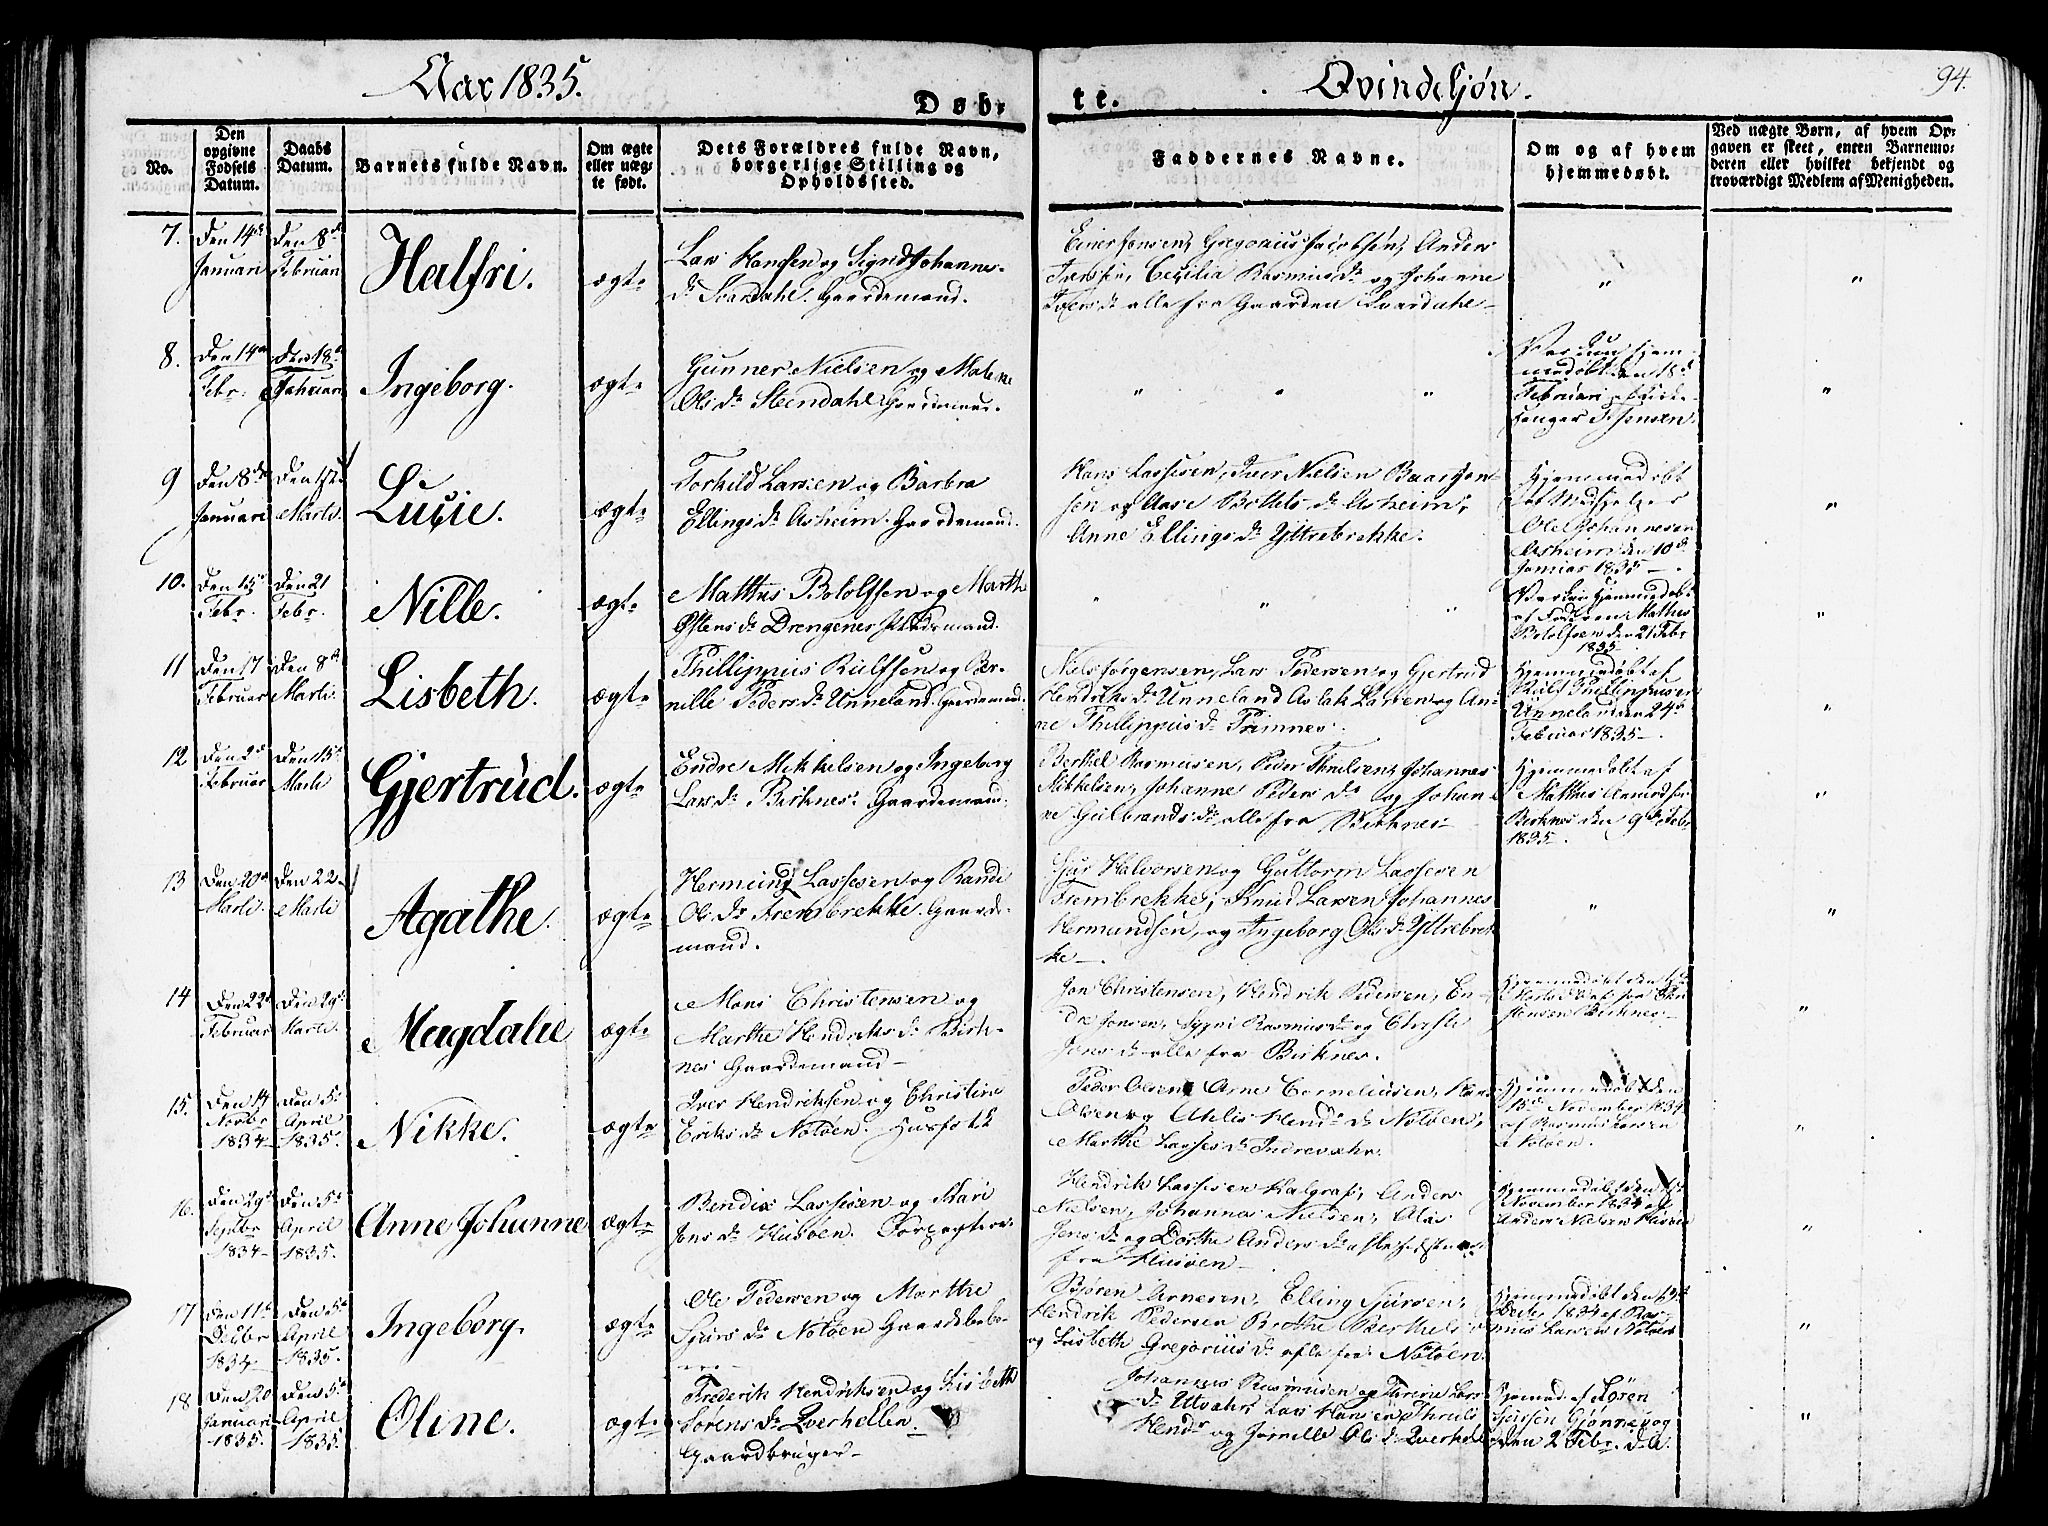 Aar 1835.
Døb-
te.
Qvindekjøn.
94.
No.
Den opgivne Fødsels Datum.
Daabs Datum.
Barnets fulde Navn.
Om ægte eller uægte født.
Dets Forældres fulde Navn, borgerlige Stilling og Opholdssted.
Faddernes Navne.
Om og af hvem hjemmedøbt.
Ved uægte Børn, af hvem Opgaven er skeet, enten Barnemoderen eller hvilket bekjendt og troværdigt Medlem af Menigheden.
7.
Den 14de
Januari
Den 8de
Februari
Halfri.
ægte
Lars Hansen og Sigrid Johannes-
dr Svardahl. Gaardemand.
Einer Jensen, Gregorius Jacobsen, Anders
Jenssen, Cecilia Rasmusdr og Johanne
Iversdr alle fra Gaarden Svardahl
"
"
8.
Den 14de
Febr.
Den 18de
Februari
Ingeborg.
ægte
Gunner Nielsen og Malene
Olsdr Stendahl Gaardemand.
" " "
den 18de
Februari af Kirke-
sanger Jensen.
"
9
Den 8de
Januari
Den 1ste
Marti.
Lucie.
ægte
Torkild Larsen og Barbra
Ellingsdr Asheim. Gaardemand.
Hans Lassesen, Iver Nielsen Baardsen
og Anne Bottelsdr Asheim,
Anne Ellingsdr Yttrebrekke.
Hjemmedøbt
Ole Johannesen
Asheim den 10de
Januar 1835
"
10.
Den 15de
Febr.
Den 21
Febr
Nille.
ægte
Matthis Botolfsen og Marth
Østensdr Drengenes
" " "
Hjemmedøbt
af Faderen Mathis
Botolfsen den 21 Febr
1835
"
11
Den 17
Februar
Den 8de
Marti.
Lisbeth.
ægte
Phillippus Rulfsen og Per-
nille Pedersdr Unneland. Gaardemand.
Niels Jørgensen, Lars Pedersen og Gjertrud
Hendriksdr Unneland Aslak Larsen og An-
ne Phillippusdr Frimnes.
Hjemmedøbt af
Rulf Phillippusen
Unneland den 24de
Februar 1835
"
12
Den 2de
Februar
Den 15de
Marti
Gjertrud.
ægte
Endre Mikkelsen og Ingeborg
Larsdr Birknes. Gaardemand.
Berkel Rasmusen, Peder Truelsen, Johannes
Mikkelsen, Johanne Pedersdr og Johan-
ne Gulbrandsdr alle fra Birknes
Hjemmedøbt af
Mathis
Birknes den 9de Febr
1835.
"
13
Den 20de
Marti.
Den 22
Marti
Agathe.
ægte
Hermund Lassesen og Randi
Olsdr Frembrekke. Gaarde-
mand.
Siur Halvorsen og Guttorm Lassesen
Frembrekke, Knud Larsen Johannes
Hermundsen, og Ingeborg Olsdr Yttrebrek-
ke.
"
"
14
Den 22de
Februar
Den 29de
Marti.
Magdalie
ægte
Mons Christensen og
Marthe Hendriksdr Birk-
nes Gaardemand
Jon Christensen, Hendrik Pedersen, En-
dre Jonsen, Sygni Rasmusdr og Christi
Jensdr alle fra Birknes.
Hjemmedøbt den
Jonsen Birknes
"
15.
Den 14
Novbr
1834
Den 5te
April
1835.
Nikke.
ægte
Iver Hendriksen og Christine
Eriksdr Notøen. Huusfolk
Peder Olsen, Arne Corneliusen, Hans
Olsen og Ahlis Hendrdr Notøen,
Marthe Lassesdr Indrevæhr.
Hjemmedøbt den
15de November 1834
af Rasmus Larsen
Notøen.
"
16.
Den 29de
Septbr
1834
Den 5te
April
1835.
Anne Johanne
ægte
Bendix Lassesen og Kari
Jonsdr Husøen. Forpagtere.
Hendrik Lassesen Halgras, Anders
Nielsen, Johannes Nielsen,
Jensdr og Dorthe Andersdr
fra Husøen
Hjemmedøbt den
November 1834 af
Anders Nielsen Husøen
"
17
Den 11te
Decbr
1834
Den 5te
April
1835.
Ingeborg.
ægte
Ole Pedersen og Marthe
Siursdr Notøen Gaardsbebo-
ere
Børen Arnesen, Elling Siursen,
Hendrik Pedersen Brothe Berthels
og Lisbeth Gregoriusdr alle fra Notøen.
Hjemmedøbt den
Decbr 1834 af Ras-
mus Larsen Notøen
"
18
Den 20
Januari
1835.
Den 5te
April
1835.
Oline.
ægte
Frederik Hendriksen og Lisbeth
Sørensdr Qverhellen.
Gaardbruger
Johannes Rasmusen og
dr Utvahr, Lars Hansen
Hendr og Pernille Olsdr Qverhellen
Hjemmed. af Søren
Siursen Gjønnes og
den 2 Febr. d.A.
"